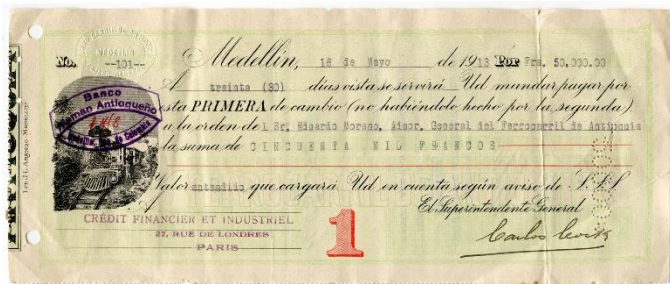 No. --101--
Medellín, 16 de Mayo de 1913 Por Frs. 50,000.00
A treinta (30) días vista se servirá Ud mandar pagar por
esta PRIMERA de cambio (no habiéndolo hecho por la segunda)
a la orden del Sr. Eduardo Moreno, Admor. General del Ferrocarril de Antioquia
la suma de CINCUENTA MIL FRANCOS
Valor que cargará Ud en cuenta según aviso de S.S.S
El Superintendente General
Banco
Alemán Antioqueño
MEDELLIN
CRÉDIT FINANCIER ET INDUSTRIEL
27, RUE DE LONDRES
PARIS
1